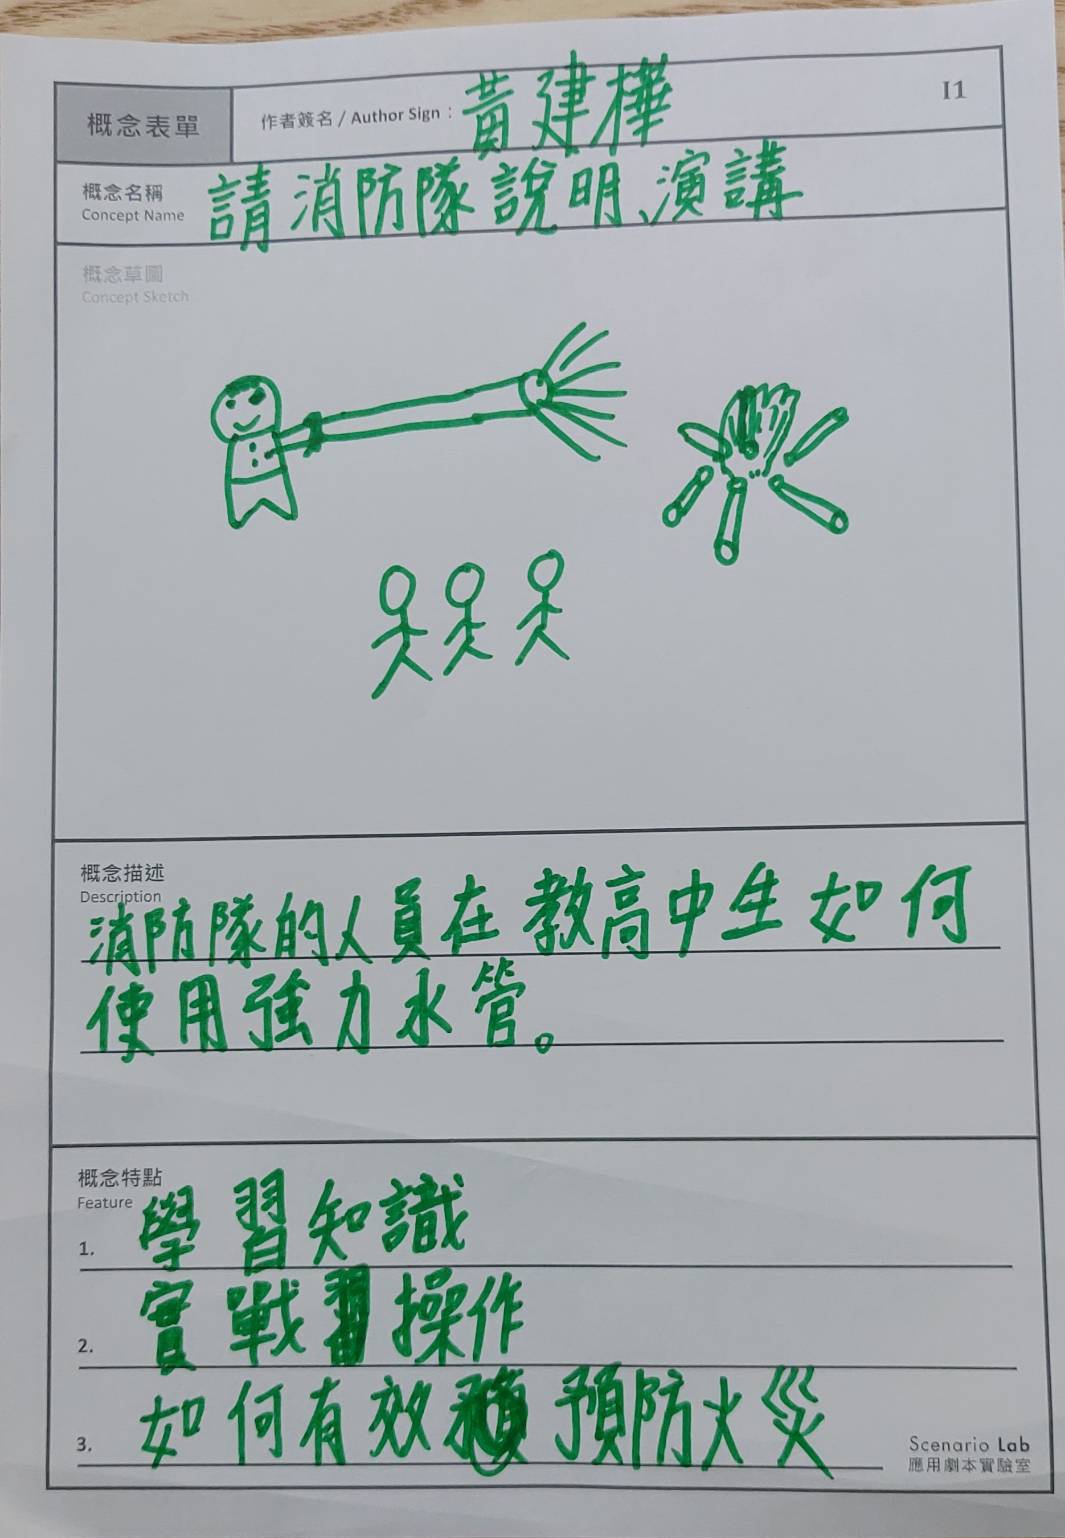 概念表單
作者簽名 / Author Sign : 黃建樺
I1
概念名稱
Concept Name
請消防隊說明、演講
概念草圖
Concept Sketch
概念描述
Description
消防隊的人員在教高中生如何
使用強力水管。
概念特點
Feature
1. 學習知識
2. 實戰操作
3. 如何有效預防火災
Scenario Lab
應用劇本實驗室